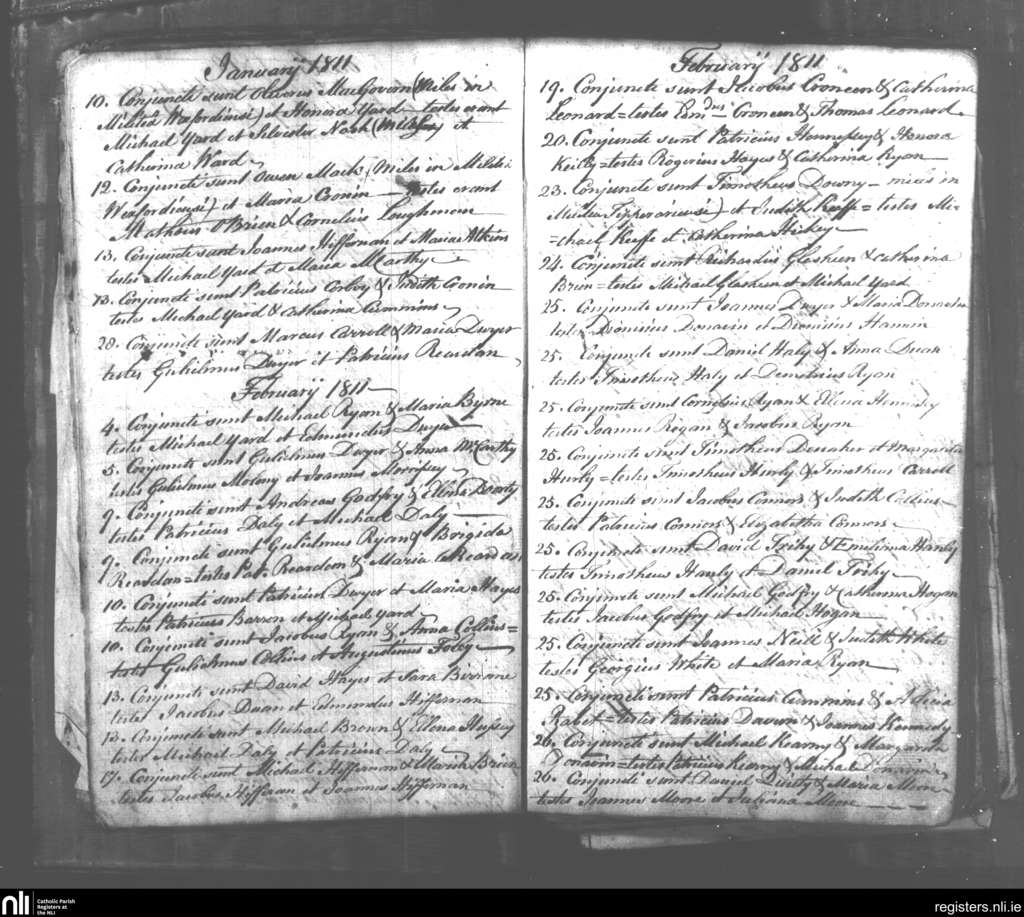 Januarij 1811
10. Conjuncti sunt Oliverus MacGovern (Miles in
Militia Wexfordiensi) et Honora Yard testes erant
Michael Yard et Silvester Nash (Miles) et
Catherina Ward
12. Conjuncti sunt Owen Mark (Miles in Militia
Wexfordiensi) et Maria Cronin testes erant
Matheus O'Brien & Cornelius Loughman
13. Conjuncti sunt Joannes Hiffernan et Maria Atkins
testes Michael Yard et Maria McCarthy
13. Conjuncti sunt Patricius Corboy & Judith Cronin
testes Michael Yard & Catherina Cummins
20. Conjuncti sunt Marcus Carroll & Maria Dwyer
testes Gulielmus Dwyer et Patricius Reardan
Februarij 1811
4. Conjuncti sunt Michael Ryan & Maria Byrne
testes Michael Yard et Edmundus Dwyer
5. Conjuncti sunt Gulielmus Dwyer & Anna McCarthy
testes Gulielmus Molony et Joannes Morrissey
9. Conjuncti sunt Andreas Godfry & Ellena Dearty
testes Patricius Daly et Michael Daly
9. Conjuncti sunt Gulielmus Ryan & Brigida
Reardan = testes Pat. Reardon & Maria Reardan
10. Conjuncti sunt Patricius Dwyer et Maria Hayes
testes Patricius Barron et Michael Yard
10. Conjuncti sunt Jacobus Ryan & Anna Collins =
testes Gulielmus Collins et Augustinus Foley
13. Conjuncti sunt David Hayes et Sara Birrane
testes Jacobus Duan et Edmundus Hiffernan
13. Conjuncti sunt Michael Brown & Ellena Husssey
testes Michael Daly et Patricius Daly
17. Conjuncti sunt Michael Hiffernan & Maria Brien
testes Jacobus Hiffernan et Joannes Hiffernan
Februarij 1811
19. Conjuncti sunt Jacobus Croneen & Catherina
Leonard = testes Edmdus Croneen & Thomas Leonard
20. Conjuncti sunt Patricius Hennessy & Honora
Kiely = testes Rogerius Hayes & Catherina Ryan
23. Conjuncti sunt Timotheus Downy - miles in
Militia Tipperariensi) et Judith Keeffe = testes Mi=
=chael Keeffe et Catherina Hickey
24. Conjuncti sunt Richardus Glasheen & Catherina
Brien = testes Michael Glasheen et Michael Yard
25. Conjuncti sunt Joannes Dwyer & Maria Donavin
testes Dionisius Donavin et Dionisius Hannin
25. Conjuncti sunt Daniel Haly & Anna Duan
testes Timotheus Haly et Demetrius Ryan
25. Conjuncti sunt Cornelius Ryan & Ellena Hennessy
testes Joannes Rogan & Jacobus Ryan
25. Conjuncti sunt Timotheus et Margarita
Hurly = testes Timotheus Hurly & Timotheus Carroll
25. Conjuncti sunt Jacobus Connors & Judith Collins
testes Patricius Connors & Elizabetha Connors
25. Conjuncti sunt David Trihy & Emelinna Hanly
testes Timotheus Hanly et Daniel Trihy
25. Conjuncti sunt Michael Godfry & Catherina Hogan
testes Jacobus Godfry et Michael Hogan
25. Conjuncti sunt Joannes Neill & Judith White
testes Georgius White et Maria Ryan
25. Conjuncti sunt Patricius Cummins & Alicia
Rabet = testes Patricius Davern & Joannes Kennedy
26. Conjuncti sunt Michael Kearny & Margarita
Donavin = testes Patricius Kearny & Michael Donavin
26. Conjuncti sunt Daniel Dinity & Maria Moore
testes Joannes Moore et Juliana Moore
nli
Catholic Parish
Registers at
the NLI
registers.nli.ie